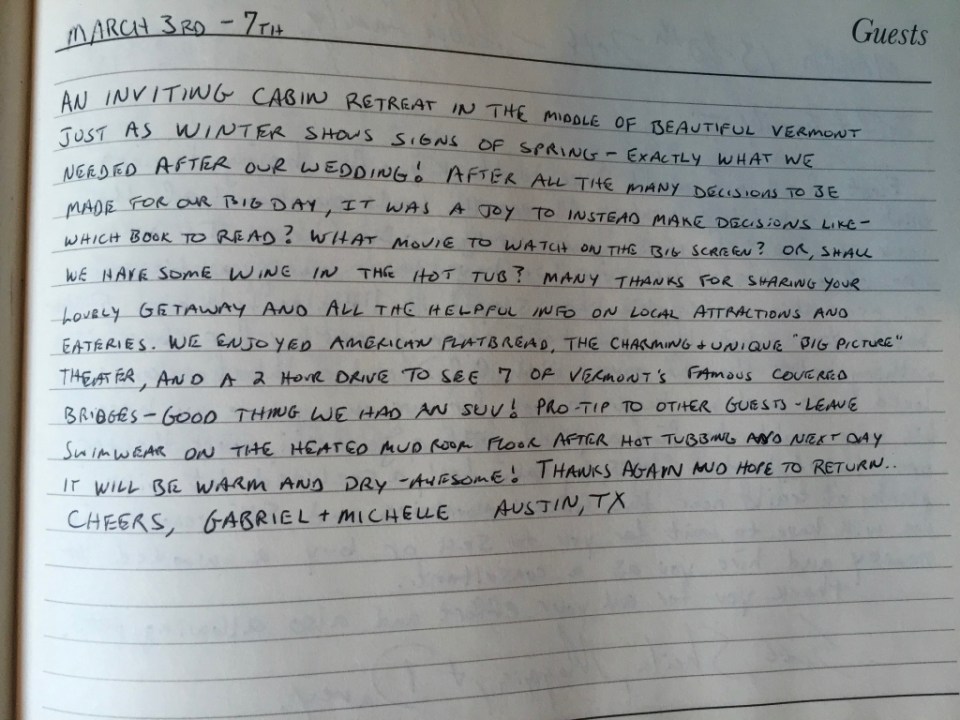 MARCH 3RD - 7TH
Guests
AN INVITING CABIN RETREAT IN THE MIDDLE OF BEAUTIFUL VERMONT
JUST AS WINTER SHOWS SIGNS OF SPRING - EXACTLY WHAT WE
NEEDED AFTER OUR WEDDING! AFTER ALL THE MANY DECISIONS TO BE
MADE FOR OUR BIG DAY, IT WAS A JOY TO INSTEAD MAKE DECISIONS LIKE -
WHICH BOOK TO READ? WHAT MOVIE TO WATCH ON THE BIG SCREEN? OR, SHALL
WE HAVE SOME WINE IN THE HOT TUB? MANY THANKS FOR SHARING YOUR
LOVELY GETAWAY AND ALL THE HELPFUL INFO ON LOCAL ATTRACTIONS AND
EATERIES. WE ENJOYED AMERICAN FLATBREAD, THE CHARMING + UNIQUE "BIG PICTURE"
THEATER, AND A 2 HOUR DRIVE TO SEE 7 OF VERMONT'S FAMOUS COVERED
BRIDGES - GOOD THING WE HAD AN SUV! PRO-TIP TO OTHER GUESTS - LEAVE
SWIMWEAR ON THE HEATED MUD ROOM FLOOR AFTER HOT TUBBING AND NEXT DAY
IT WILL BE WARM AND DRY - AWESOME! THANKS AGAIN AND HOPE TO RETURN..
CHEERS, GABRIEL + MICHELLE AUSTIN, TX